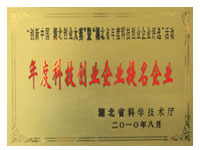 “创新中国·湖北创业大赛”暨“湖北省年度科技创业企业评选”活动
年度科技创业企业提名企业
湖北省科学技术厅
二〇一〇年八月